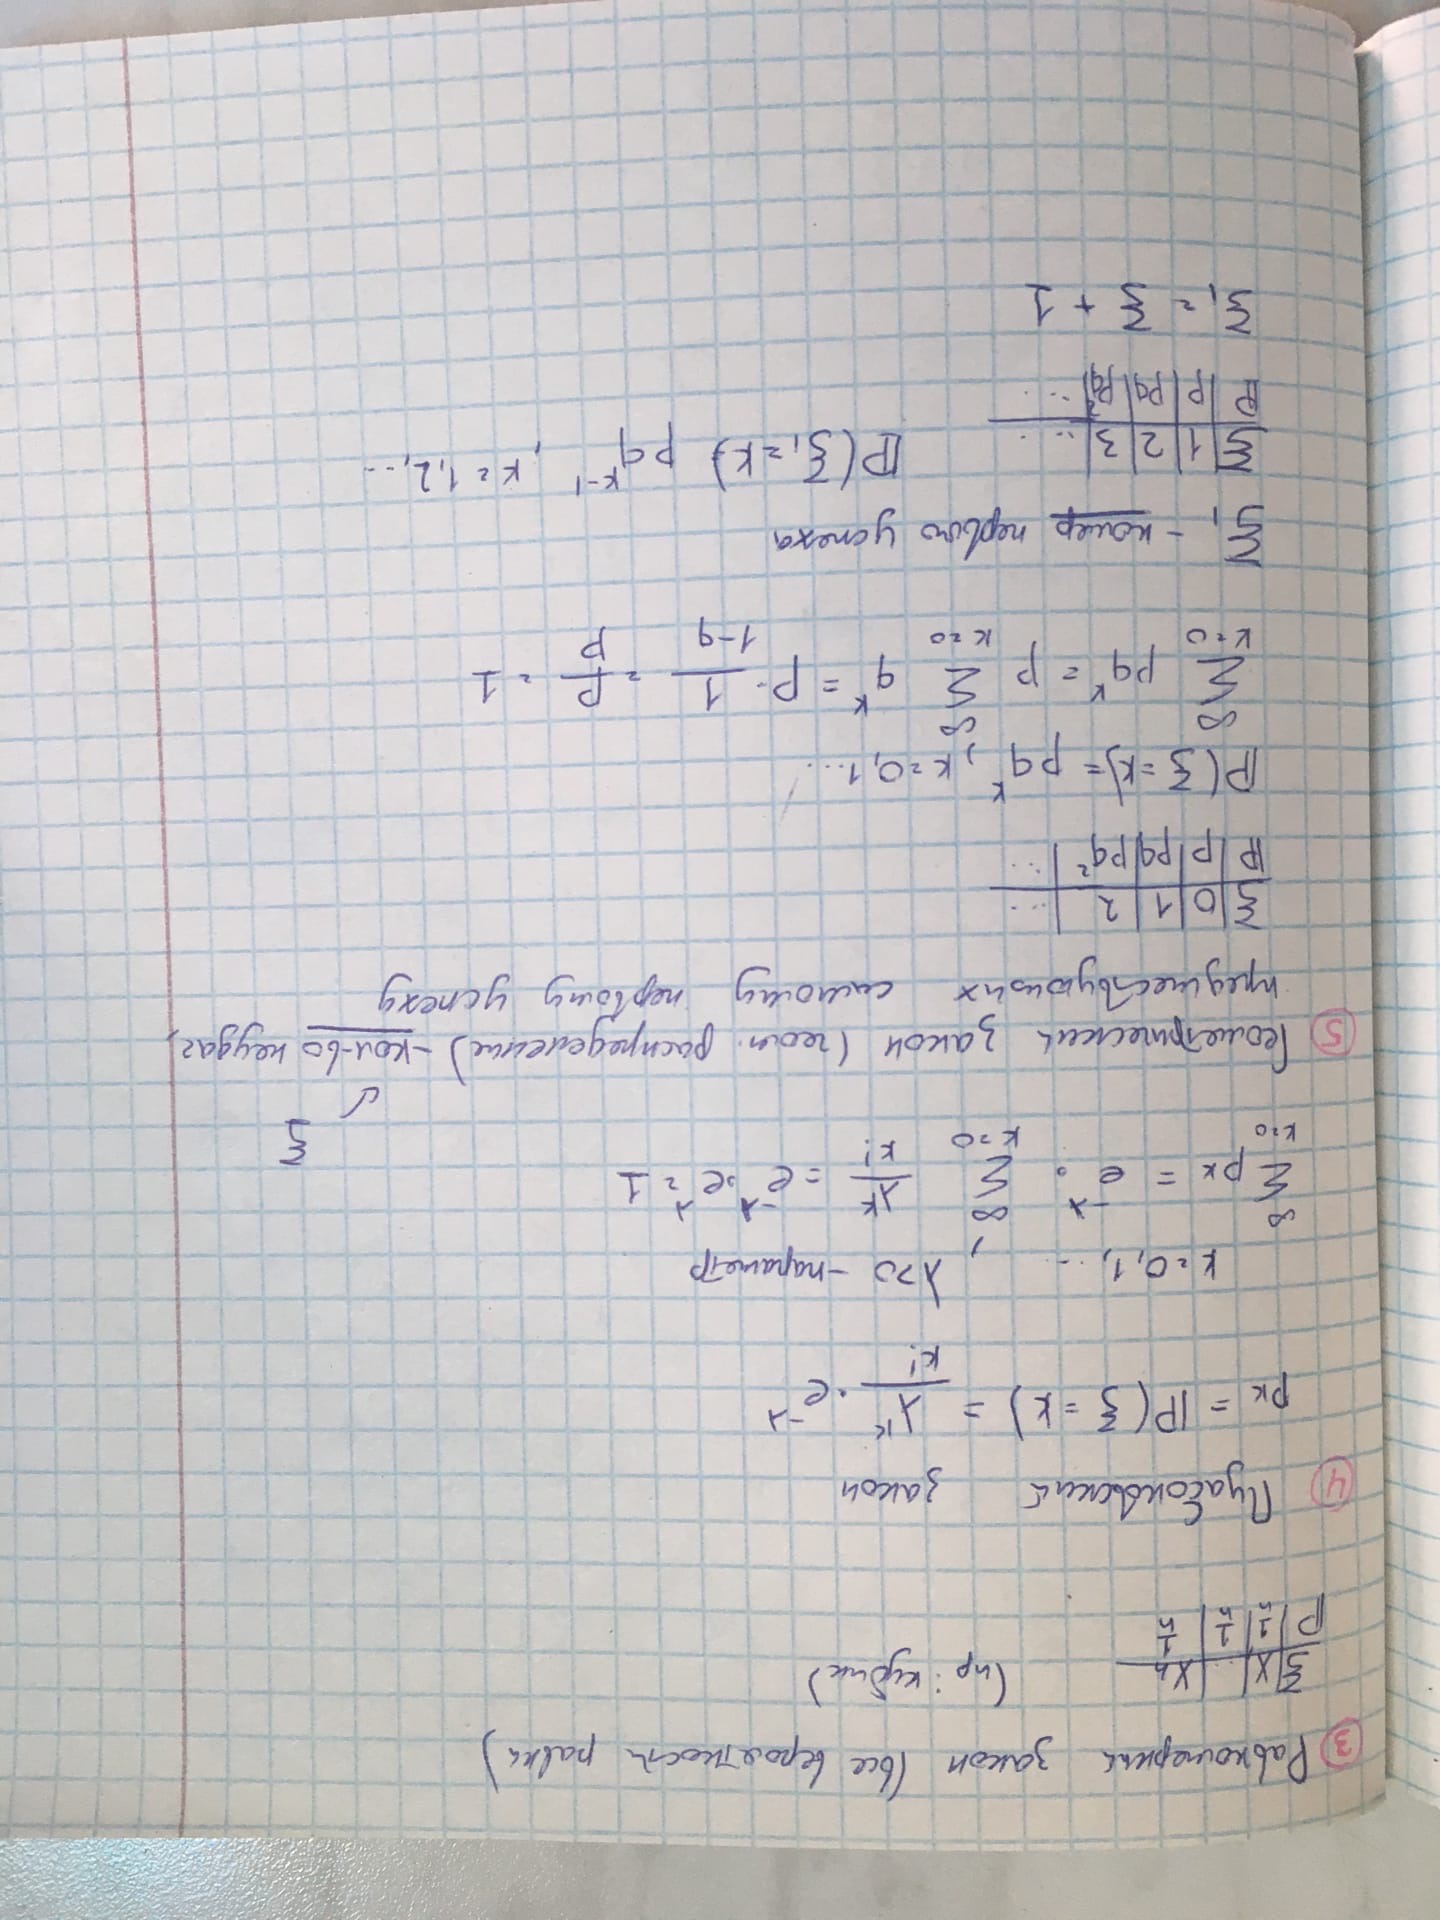 ③ Равномерный закон (все вероятности равны)
ξ | x | ... | xn (пр: кубик)
P | 1/n | 1/n | 1/n
④ Пуассоновский закон
pк = ℙ(ξ = k) = λ^k / k! · e^-λ
k = 0, 1, ... , λ>0 - параметр
∞∑k=0 pк = e^-λ · ∞∑k=0 λ^k / k! = e^-λ · e^λ = 1
ξ
↙
⑤ Геометрический закон (геом. распределение) - кол-во неудач,
предшествующих самому первому успеху
ξ | 0 | 1 | 2 | ...
ℙ | p | pq | pq² | ...
ℙ(ξ = k) = pq^k, k = 0, 1...
∞∑k=0 pq^k = p ∞∑k=0 q^k = p · 1 / 1-q = p / p = 1
ξ₁ - номер первого успеха
ξ | 1 | 2 | 3 | ... ℙ(ξ₁ = k) = pq^k-1, k = 1, 2, ...
ℙ | p | pq | pq² | ...
ξ₁ = ξ + 1